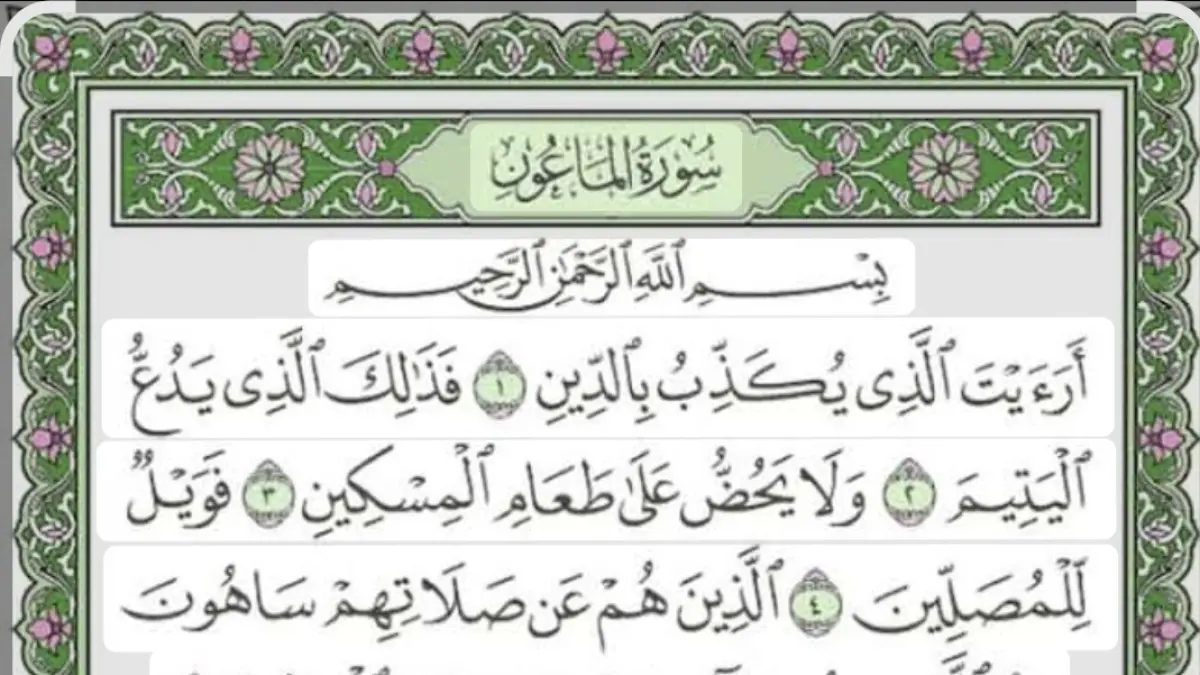 سُورَةُ المَاعُونِ
بِسْمِ ٱللَّهِ ٱلرَّحْمَٰنِ ٱلرَّحِيمِ
أَرَءَيْتَ ٱلَّذِى يُكَذِّبُ بِٱلدِّينِ ١ فَذَٰلِكَ ٱلَّذِى يَدُعُّ
ٱلْيَتِيمَ ٢ وَلَا يَحُضُّ عَلَىٰ طَعَامِ ٱلْمِسْكِينِ ٣ فَوَيْلٌ
لِّلْمُصَلِّينَ ٤ ٱلَّذِينَ هُمْ عَن صَلَاتِهِمْ سَاهُونَ